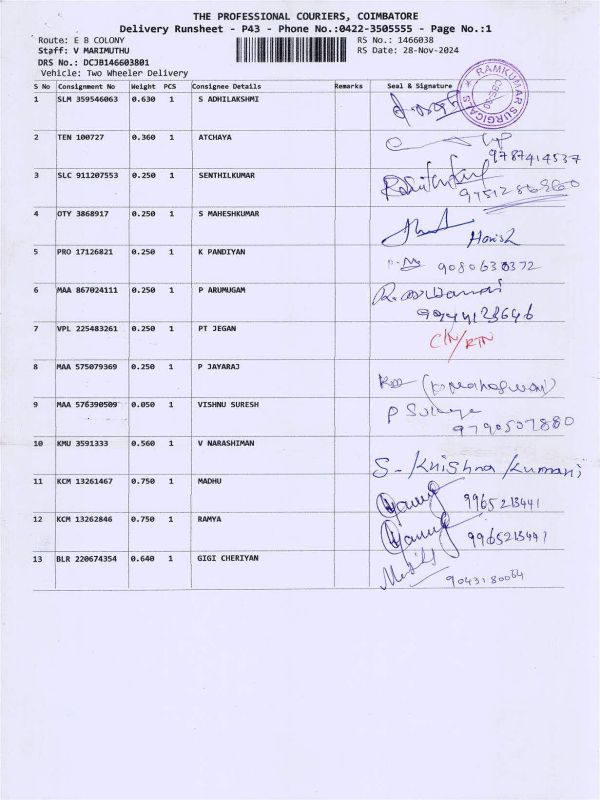 THE PROFESSIONAL COURIERS, COIMBATORE
Delivery Runsheet - P43 - Phone No.:0422-3505555 - Page No.:1
Route: E B COLONY RS No.: 1466038
Staff: V MARIMUTHU RS Date: 28-Nov-2024
DRS No: DCJB146603801
Vehicle: Two Wheeler Delivery
S No Consignment No Weight PCS Consignee Details Remarks Seal & Signature
RAMKUMAR SURGICALS
1 SLM 359546063 0.630 1 S ADHILAKSHMI
2 TEN 100727 0.360 1 ATCHAYA
9787414537
3 SLC 911207553 0.250 1 SENTHILKUMAR
4 OTY 3868917 0.250 1 S MAHESHKUMAR
Harish
5 PRO 17126821 0.250 1 K PANDIYAN
6 MAA 867024111 0.250 1 P ARUMUGAM
7 VPL 225483261 0.250 1 PT JEGAN
8 MAA 575079369 0.250 1 P JAYARAJ
9 MAA 576390509 0.050 1 VISHNU SURESH
9790507880
10 KMU 3591333 0.560 1 V NARASHIMAN
S. Krishna Kumari
11 KCM 13261467 0.750 1 MADHU
9965213441
12 KCM 13262846 0.750 1 RAMYA
9965213441
13 BLR 220674354 0.640 1 GIGI CHERIYAN
9043180064